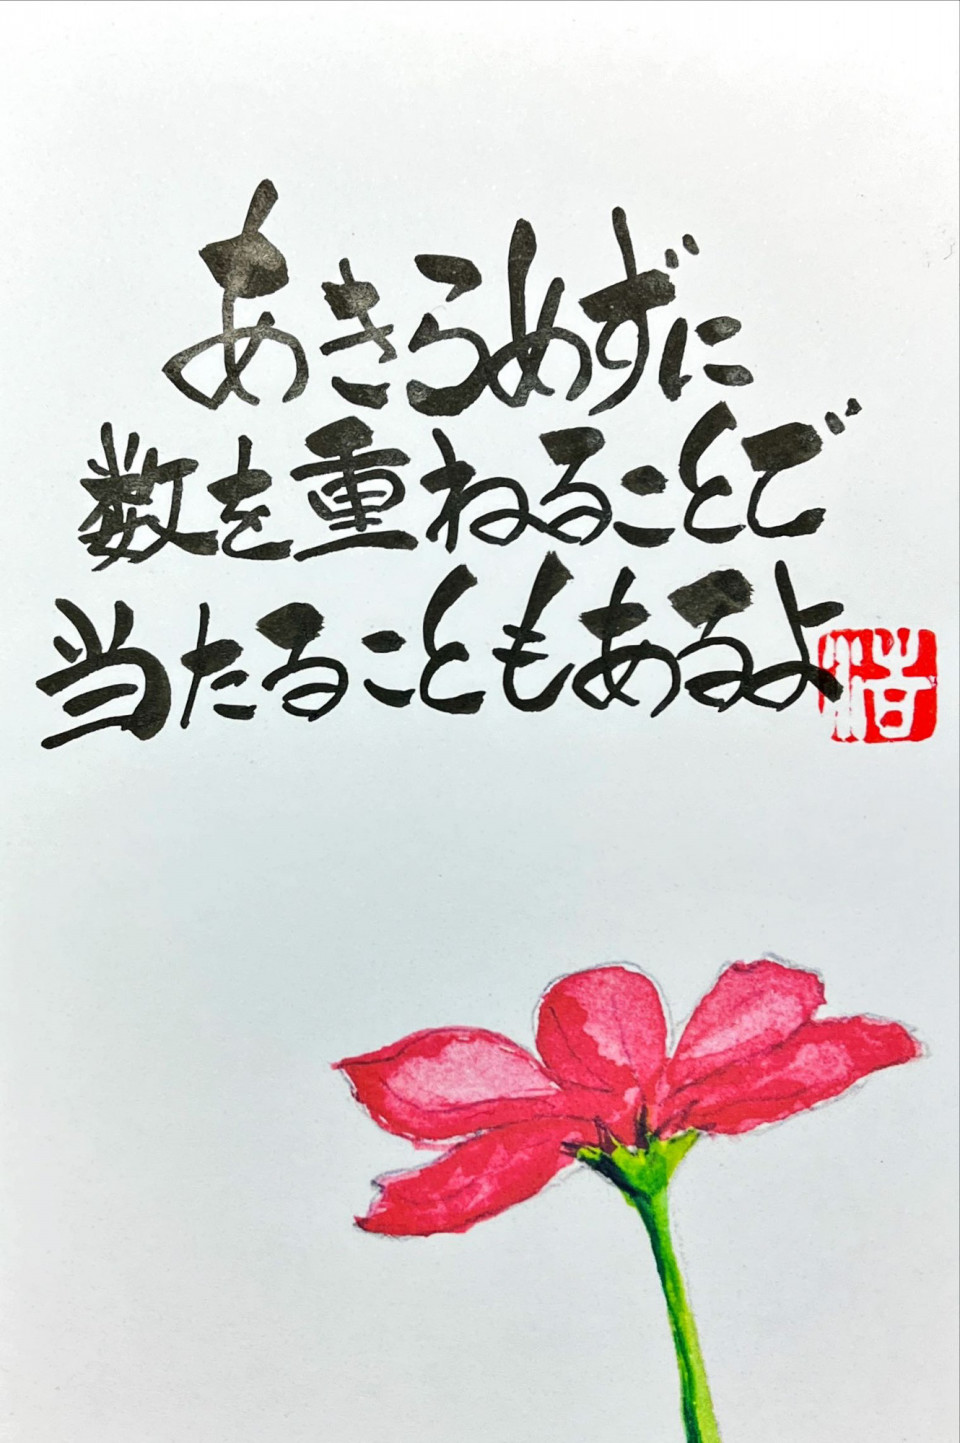 あきらめずに
数を重ねることで
当たることもあるよ